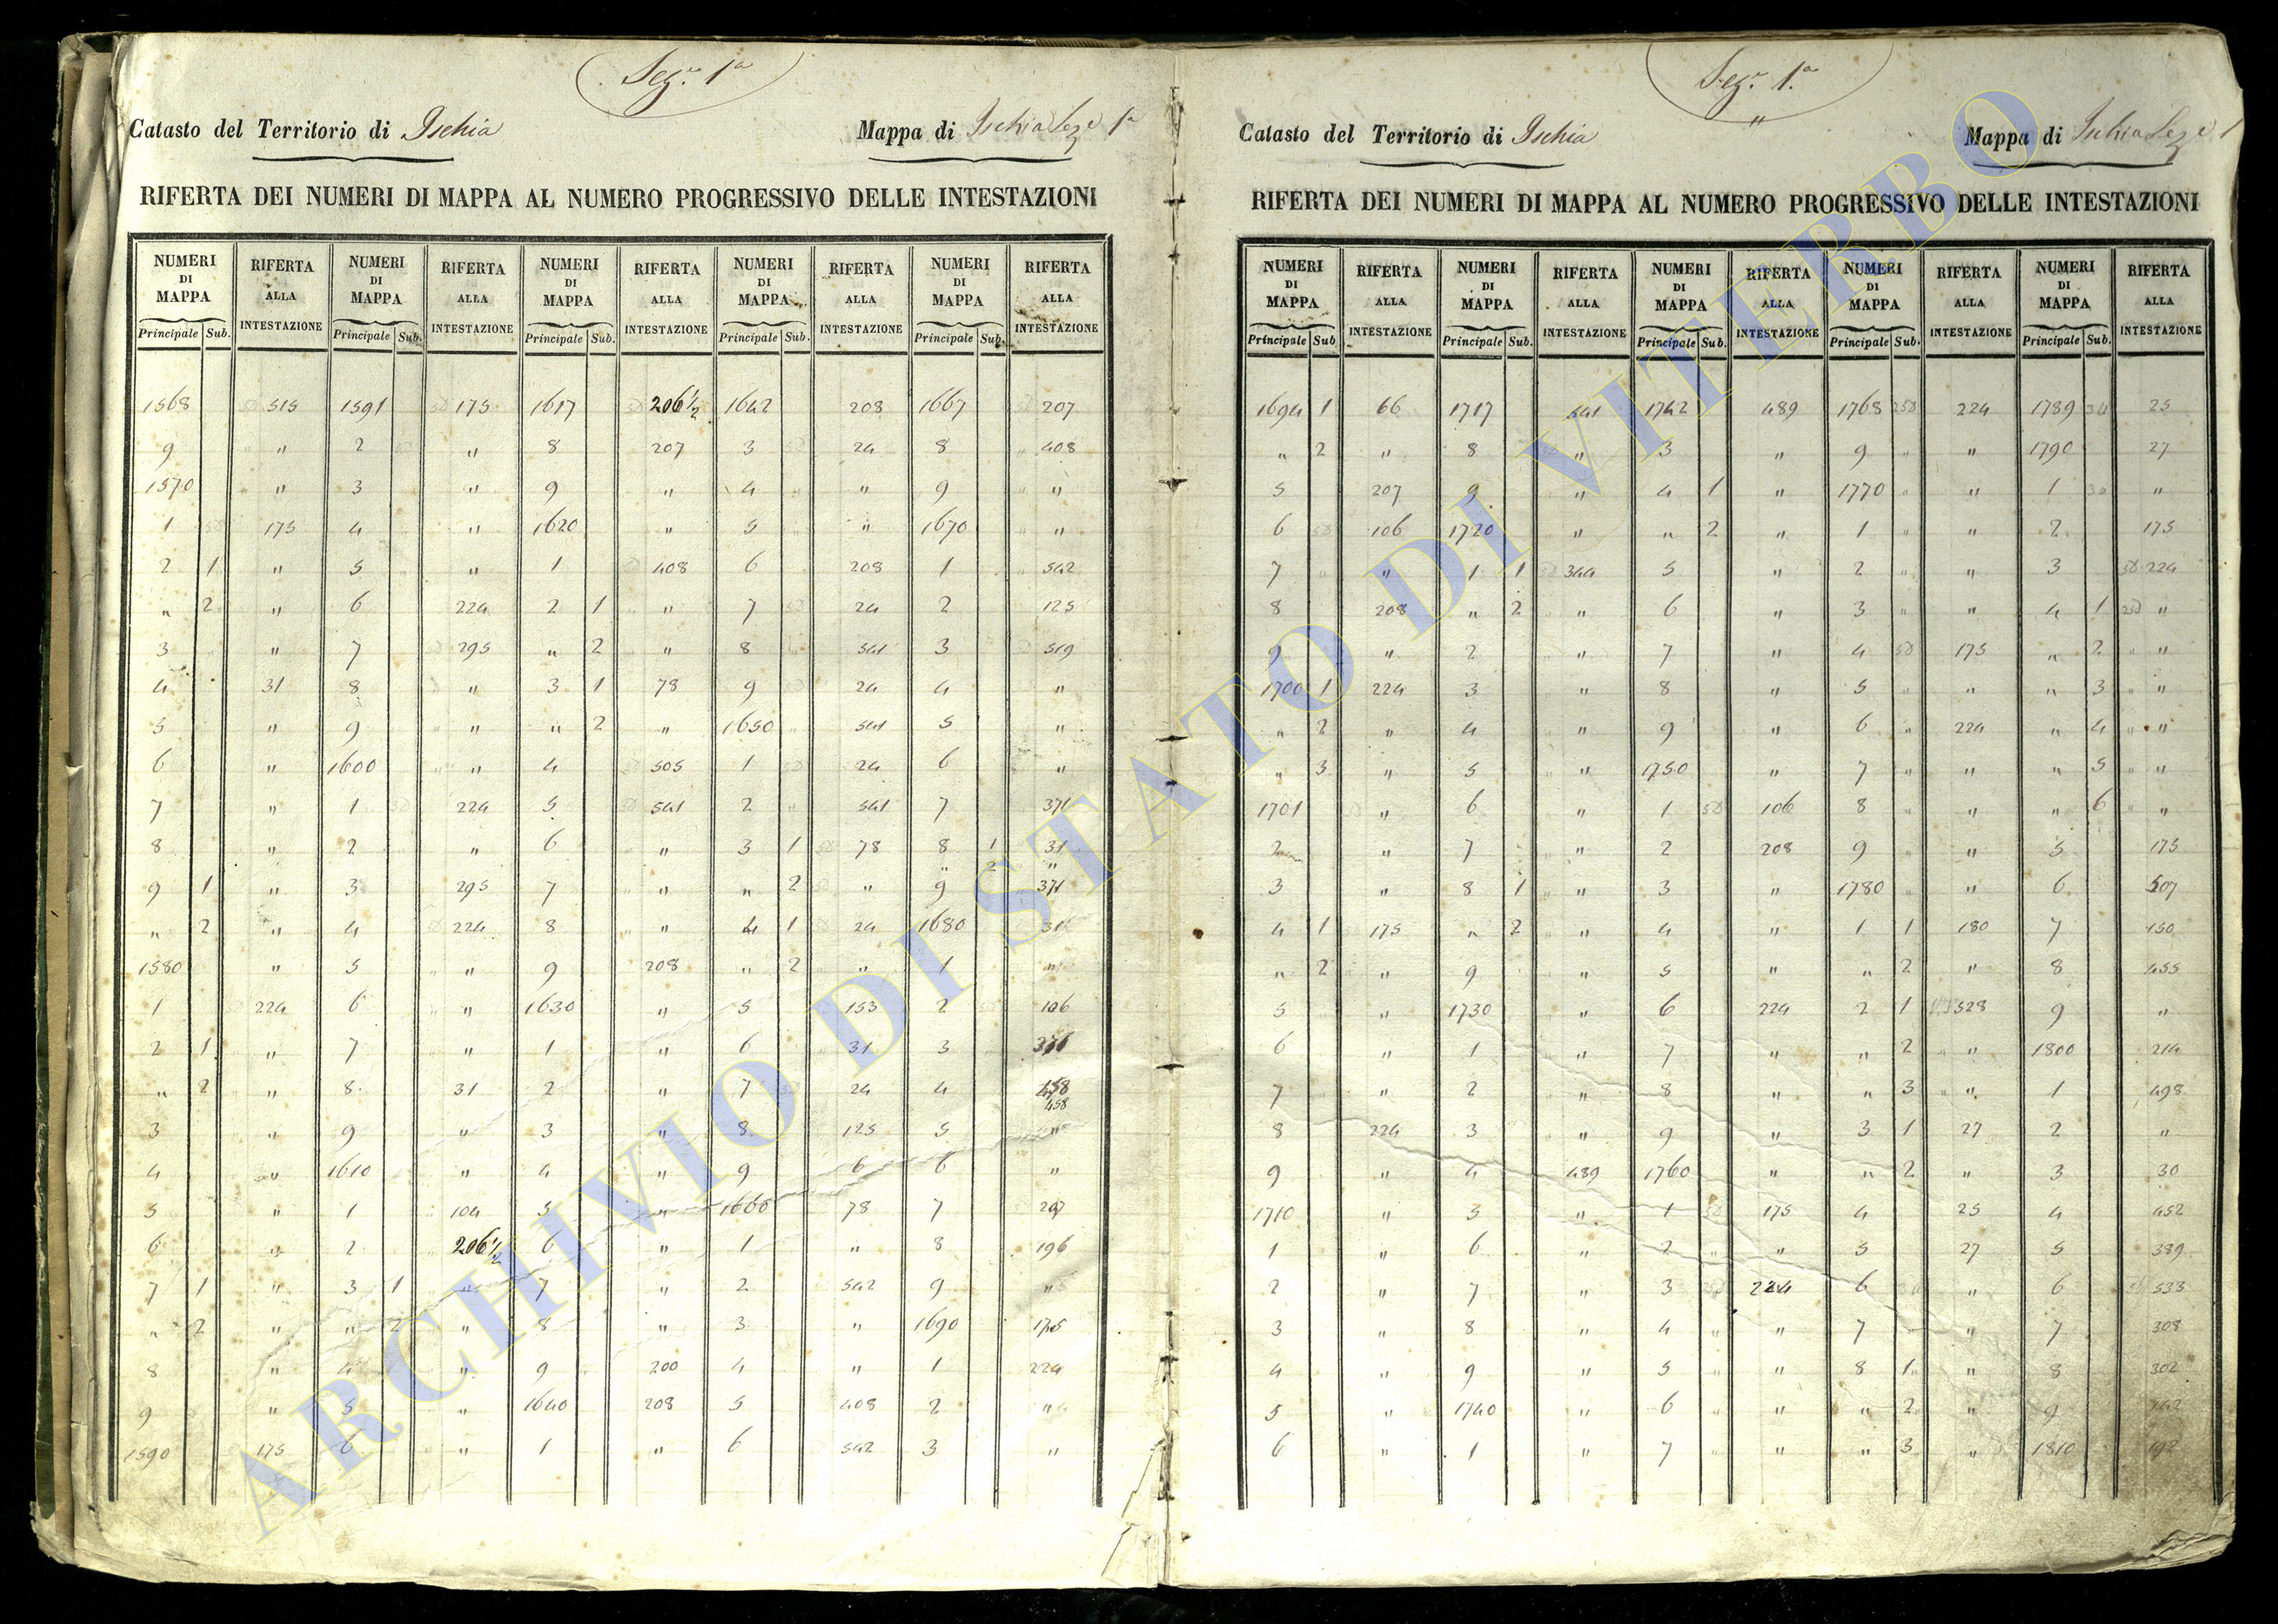 Segr. 1a
Catasto del Territorio di Ischia Mappa di Ischia Seze 1a
RIFERTA DEI NUMERI DI MAPPA AL NUMERO PROGRESSIVO DELLE INTESTAZIONI
NUMERI DI MAPPA RIFERTA ALLA INTESTAZIONE NUMERI DI MAPPA RIFERTA ALLA INTESTAZIONE NUMERI DI MAPPA RIFERTA ALLA INTESTAZIONE NUMERI DI MAPPA RIFERTA ALLA INTESTAZIONE NUMERI DI MAPPA RIFERTA ALLA INTESTAZIONE
Principale Sub. Principale Sub. Principale Sub. Principale Sub. Principale Sub.
1568 515 1591 175 1617 206 1/2 1642 208 1667 207
9 " 2 " 8 207 3 24 8 408
1570 " 3 " 9 " 4 " 9 "
1 175 4 " 1620 " 5 " 1670 "
2 1 " 5 " 1 408 6 208 1 542
" 2 " 6 224 2 1 " 7 24 2 125
3 " 7 295 " 2 " 8 541 3 519
4 31 8 " 3 1 78 9 24 4 "
5 " 9 " " 2 " 1650 541 5 "
6 " 1600 " 4 505 1 24 6 "
7 " 1 224 5 541 2 541 7 371
8 " 2 " 6 " 3 1 78 8 1 31
" 2 "
9 1 " 3 295 7 " " 2 " 9 371
" 2 " 4 224 8 " 4 1 24 1680 31
1580 " 5 " 9 208 " 2 " 1 "
1 224 6 " 1630 " 5 153 2 106
2 1 " 7 " 1 " 6 31 3
" 2 " 8 31 2 " 7 24 4 458
458
3 " 9 " 3 " 8 125 5 "
4 " 1610 " 4 " 9 6 6 "
5 " 1 104 5 " 1660 78 7 207
6 " 2 206 1/2 6 " 1 " 8 196
7 1 " 3 1 " 7 " 2 542 9 "
" 2 " " 2 " 8 " 3 " 1690 175
8 " 4 " 9 200 4 " 1 224
9 " 5 " 1640 208 5 408 2 "
1590 175 6 " 1 " 6 542 3 "
Segr. 1.a
"
Catasto del Territorio di Ischia Mappa di Ischia Seze 1
RIFERTA DEI NUMERI DI MAPPA AL NUMERO PROGRESSIVO DELLE INTESTAZIONI
NUMERI DI MAPPA RIFERTA ALLA INTESTAZIONE NUMERI DI MAPPA RIFERTA ALLA INTESTAZIONE NUMERI DI MAPPA RIFERTA ALLA INTESTAZIONE NUMERI DI MAPPA RIFERTA ALLA INTESTAZIONE NUMERI DI MAPPA RIFERTA ALLA INTESTAZIONE
Principale Sub. Principale Sub. Principale Sub. Principale Sub. Principale Sub.
1694 1 66 1717 541 1742 489 1768 224 1789 25
" 2 " 8 " 3 " 9 " 1790 27
5 207 9 " 4 1 " 1770 " 1 "
6 106 1720 " " 2 " 1 " 2 175
7 " 1 1 344 5 " 2 " 3 224
8 208 " 2 " 6 " 3 " 4 1 "
9 " 2 " 7 " 4 175 " 2 "
1700 1 224 3 " 8 " 5 " " 3 "
" 2 " 4 " 9 " 6 224 " 4 "
" 3 " 5 " 1750 " 7 " " 5 "
1701 " 6 " 1 106 8 " " 6 "
2 " 7 " 2 208 9 " 5 175
3 " 8 1 " 3 " 1780 " 6 507
4 1 175 " 2 " 4 " 1 1 180 7 150
" 2 " 9 " 5 " " 2 " 8 455
5 " 1730 " 6 224 2 1 528 9 "
6 " 1 " 7 " " 2 " 1800 214
7 " 2 " 8 " " 3 " 1 498
8 224 3 " 9 " 3 1 27 2 "
9 " 4 489 1760 " " 2 " 3 30
1710 " 5 " 1 175 4 25 4 452
1 " 6 " 2 " 5 27 5 389
2 " 7 " 3 224 6 " 6 533
3 " 8 " 4 " 7 " 7 308
4 " 9 " 5 " 8 1 " 8 302
5 " 1740 " 6 " " 2 " 9
6 " 1 " 7 " " 3 " 1810 192
ARCHIVIO DI STATO DI VITERBO